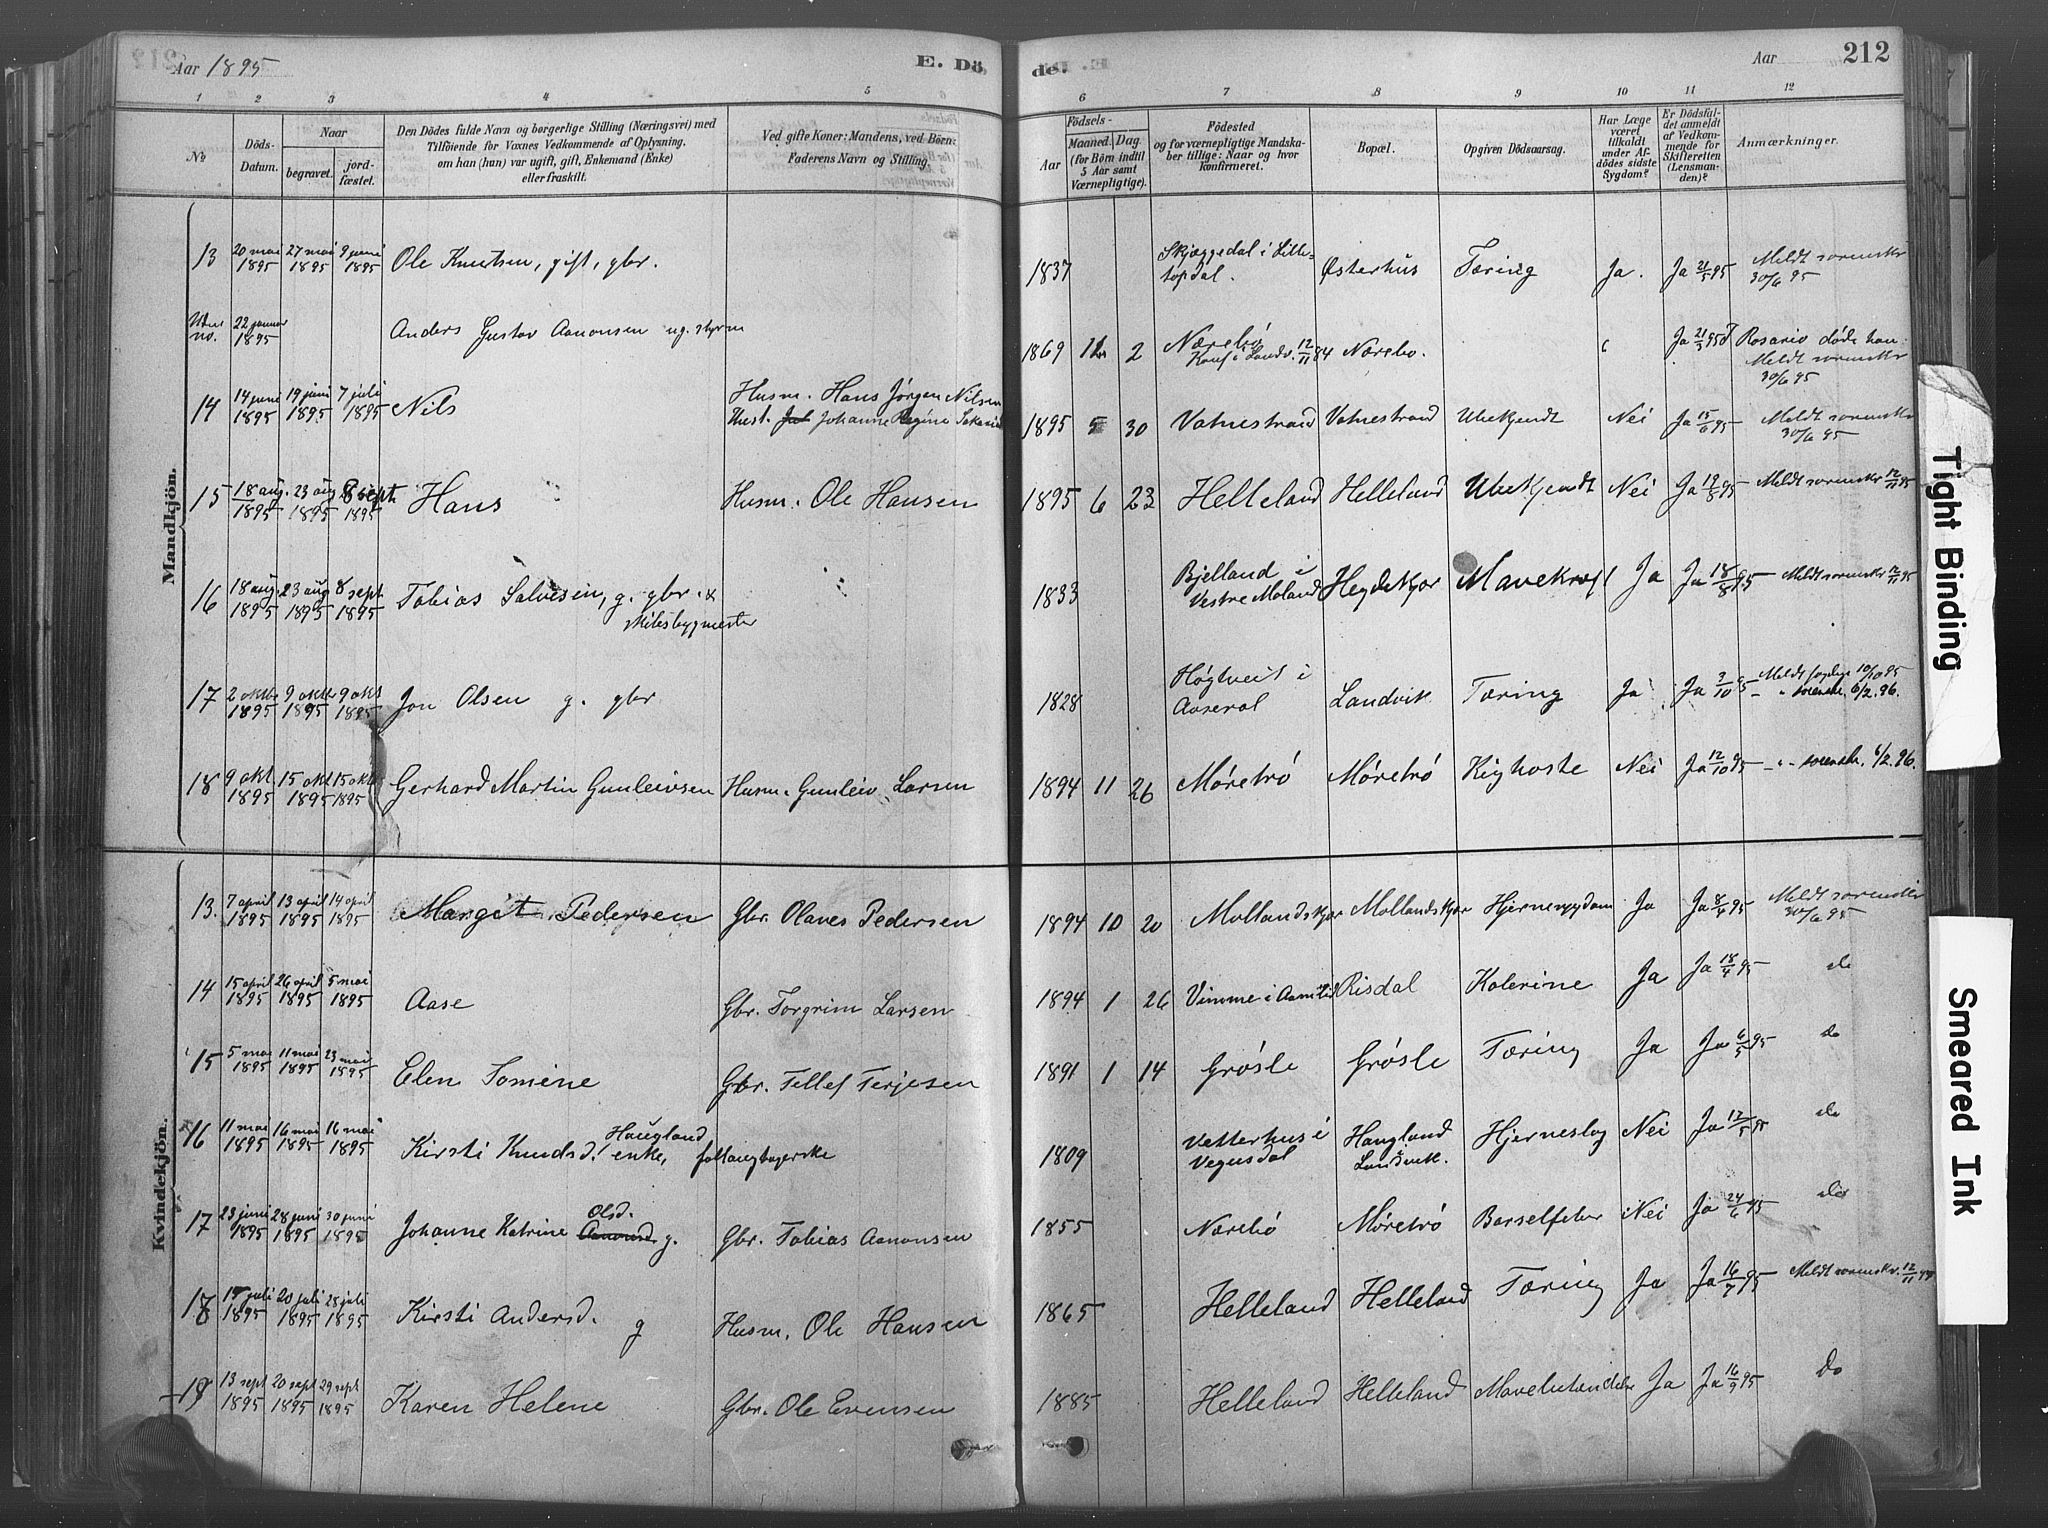 Aar 1895 E. Dö de. Aar 212
1 2 3 4 5 6 7 8 9 10 11 12
No
Döds-Datum.
Naar
begravet.
jord-fæstet.
Den Dödes fulde Navn og borgerlige Stilling (Næringsvei) med
Tilföiende for Voxnes Vedkommende af Oplysning,
om han (hun) var ugift, gift, Enkemand (Enke)
eller fraskilt.
Ved gifte Koner: Mandens, ved Börn:
Faderens Navn og Stilling.
Födsels-
Aar
Maaned. Dag
(for Börn indtil
5 Aar samt
Værnepligtige).
Födested
og for værnepligtige Mandska-
ber tillige: Naar og hvor
konfirmeret.
Bopæl.
Opgiven Dödsaarsag.
Har Læge
været
tilkaldt
under Af-
dödes sidste
Sygdom?
Er Dödsfal-
det anmeldt
af Vedkom-
mende for
Skifteretten
(Lensman-
den)?
Anmærkninger.
Mandkjön.
13 20 mai 1895 27 mai 1895 9 juni 1895 Ole Knutsen, gift, gbr. 1837 Skjæggedal i Lille-topdal. Østerhus Tæring Ja. Ja 21/5 95 Meldt sorenskr 30/6 95
Uden no. 22 januar 1895 Anders Gustav Aanonsen ug. styrm 1869 12 2 Nærebø Konf i Landv. 12/11 84 Nærebø. Ja 21/3 95 Rosario døde han. Meldt sorenskr 30/6 95
14 14 juni 1895 19 juni 1895 7 juli 1895 Nils Husm. Hans Jørgen Nilsen Hust. Johanne Regine 1895 5 30 Vatnestrand Vatnestrand Ubekjendt Nei Ja 15/6 95 Meldt sorenskr 30/6 95
15 18 aug. 1895 23 aug 1895 8 sept. 1895 Hans Husm. Ole Hansen 1895 6 23 Helleland Helleland Ubekjendt Nei Ja 19/8 95 Meldt sorenskr 12/11 95
16 18 aug. 1895 23 aug 1895 8 sept. 1895 Tobias Salvesen, g. gbr. & Skibsbygmester 1833 Bjelland i Vestre Moland Heydekjær Mavekræft Ja Ja 18/8 95 Meldt sorenskr 12/11 95
17 2 oktb 1895 9 oktb 1895 9 okt 1895 Jon Olsen g. gbr 1828 Høgtveit i Aaseral Landvik Tæring Ja Ja 3/10 95 Meldt 10/10 95 - " - sorenskr. 6/2 96.
18 9 okt 1895 15 okt 1895 15 okt 1895 Gerhard Martin Gunleivsen Husm. Gunleiv Larsen 1894 11 26 Møretrø Møretrø Kighoste Nei Ja 12/10 95 - " - sorenskr. 6/2 96.
Kvindekjön.
13. 7 april 1895 13 april 1895 14 april 1895 Margit Pedersen Gbr. Olaves Pedersen 1894 10 20 Mollandskjær Mollandskjær Ja Ja 8/4 95 Meldt sorenskr 30/6 95
14 15 april 1895 26 april 1895 5 mai 1895 Aase Gbr. Torgrim Larsen 1894 1 26 Vimme i Aamlid Risdal Kolerine Ja Ja 18/4 95 do
15 5 mai 1895 11 mai 1895 23 mai 1895 Elen Tomine Gbr. Tellef Terjesen 1891 1 14 Grøsle Grøsle Tæring Ja Ja 6/5 95 do
16 11 mai 1895 16 mai 1895 16 mai 1895 Kirsti Knudsd. Haugland enke, follaugtagerske 1809 Vetterhus i Vegusdal Haugland Landvik. Hjerneslag Nei Ja 17/5 95 do
17 23 juni 1895 28 juni 1895 30 juni 1895 Johanne Katrine Olsd. Aanonsd g. Gbr. Tobias Aanonsen 1855 Nærebø Møretrø Barselfeber Nei Ja 24/6 95 do
18 15 juli 1895 20 juli 1895 28 juli 1895 Kirsti Andersd. g Husm. Ole Hansen 1865 Helleland Helleland Tæring Ja Ja 16/7 95 Meldt sorenskr. 12/11 95
19 13 sept 1895 20 sept 1895 29 sept 1895 Karen Helene Gbr. Ole Evensen 1885 Helleland Helleland Ja Ja 16/9 95 Do
Tight Binding
Smeared Ink